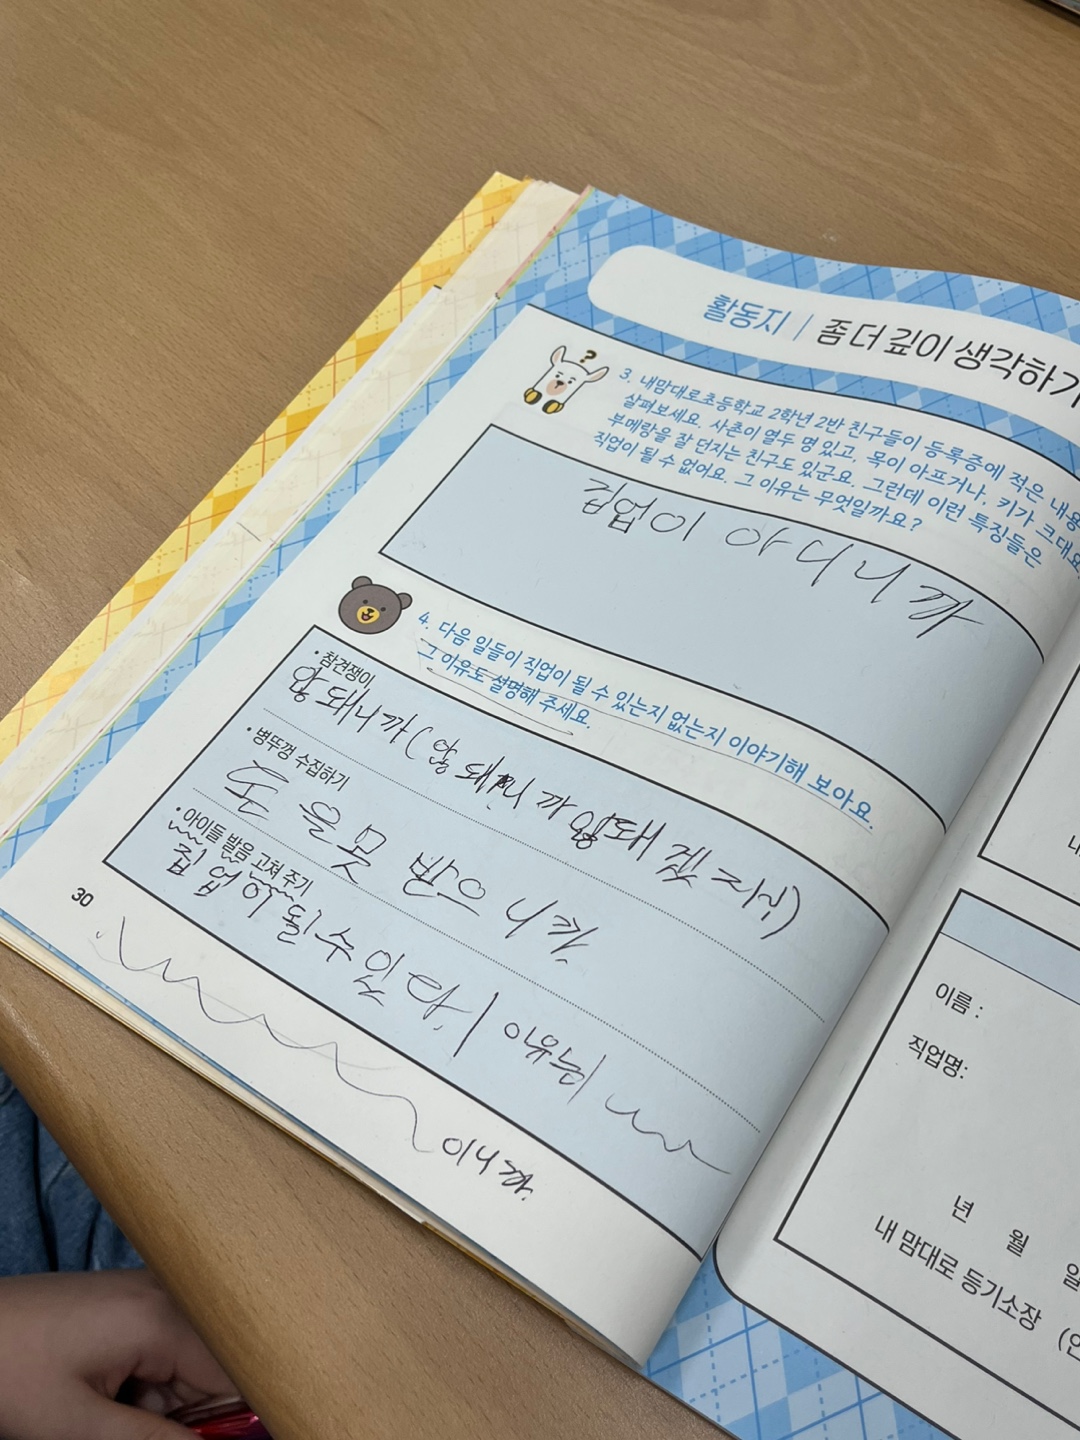 활동지 | 좀 더 깊이 생각하기
?
3. 내맘대로초등학교 2학년 2반 친구들이 등록증에 적은 내용
살펴보세요. 사촌이 열두 명 있고, 목이 아프거나, 키가 크대요
부메랑을 잘 던지는 친구도 있군요. 그런데 이런 특징들은
직업이 될 수 없어요. 그 이유는 무엇일까요?
직업이 아니니까
4. 다음 일들이 직업이 될 수 있는지 없는지 이야기해 보아요.
그 이유도 설명해 주세요.
• 참견쟁이
안 돼니까
• 병뚜껑 수집하기
돈을 못 받으니까
• 아이들 발음 고쳐 주기
직업이 될 수 있다 이유는
이니까.
30
이름 :
직업명:
년 월 일
내 맘대로 등기소장 (인